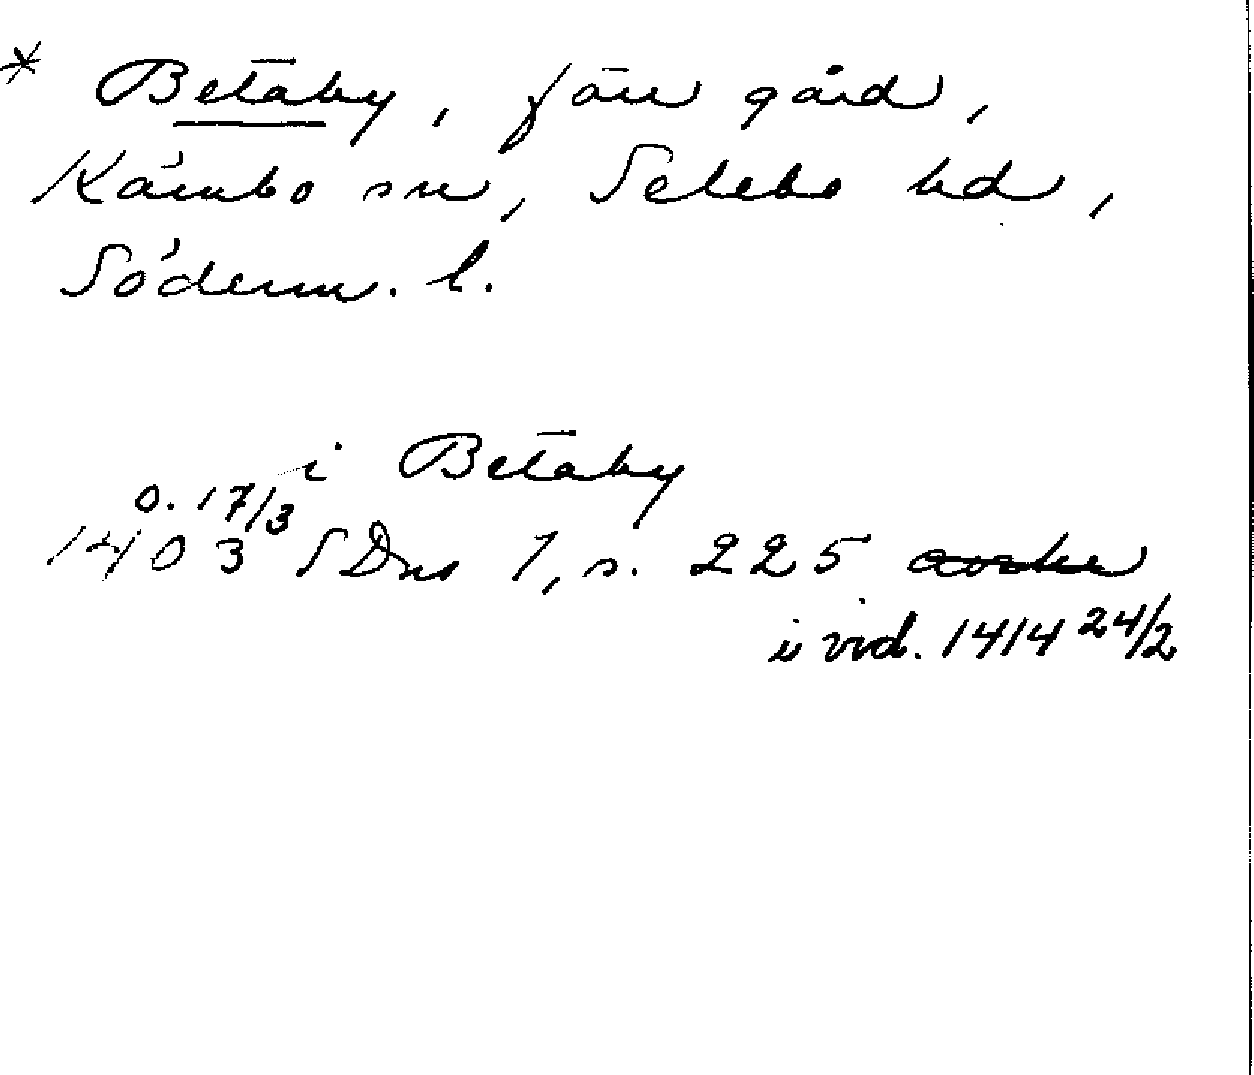 * Betaby, förr gård,
Kärnbo sn, Selebo hd,
Söderm. l.
i Betaby
o. 17/3
1403 SDns 1, s. 225
i vid. 1414 24/2